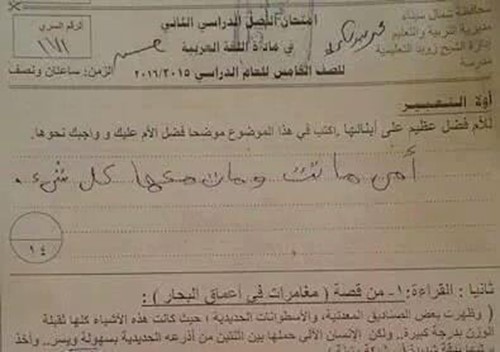 محافظة شمال سيناء
مديرية التربية والتعليم
إدارة الشيخ زويد التعليمية
مدرسة
امتحان الفصل الدراسي الثاني
في مادة اللغة العربية
للصف الخامس للعام الدراسي ٢٠١٦/٢٠١٥
الزمن: ساعتان ونصف
الرقم السري
أولا التعبير
للأم فضل عظيم على أبنائها .اكتب في هذا الموضوع موضحا فضل الأم عليك و واجبك نحوها.
أمى ماتت ومات معها كل شىء .
١٤
ثانيا : القراءة: ١- من قصة ( مغامرات في أعماق البحار ) :
( وظهرت بعض الصناديق المعدنية، والأسطوانات الحديدية ؛ حيث كانت هذه الأشياء كلها ثقيلة
الوزن بدرجة كبيرة.. ولكن الإنسان الآلي حملها بين اثنتين من أذرعه الحديدية بسهولة ويسر.. وأخذ